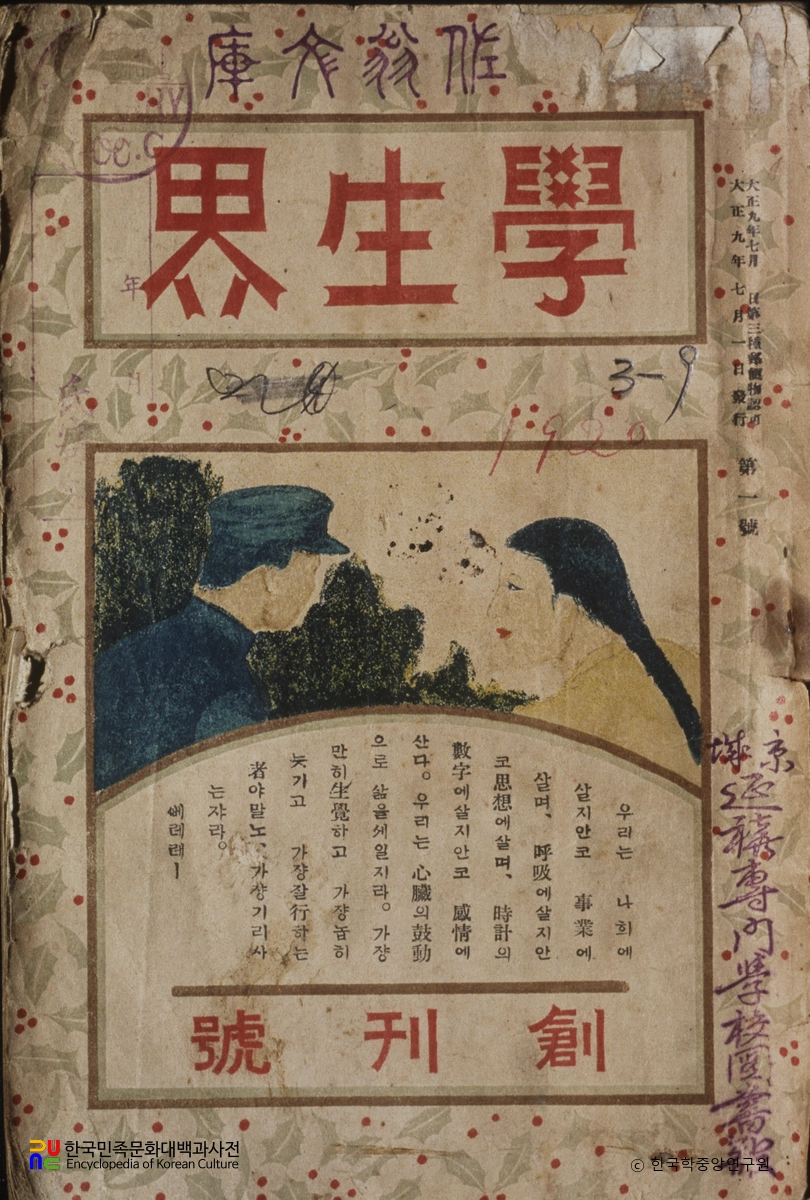 佐翁文庫
學生界
年
3-9
1920
大正九年七月 日第三種郵便物認可
大正九年七月一日發行
第一號
우리는 나희에
살지안코 事業에
살며、 呼吸에살지안
코思想에살며、 時計의
數字에살지안코 感情에
산다。우리는 心臟의鼓動
으로 삶을세일지라。가쟝
만히生覺하고 가쟝놉히
늣기고 가쟝잘行하는
者야말노、가쟝기리사
는쟈라。
쎄레레ㅣ
創刊號
京城延禧專門學校圖書舘
한국민족문화대백과사전
Encyclopedia of Korean Culture
© 한국학중앙연구원